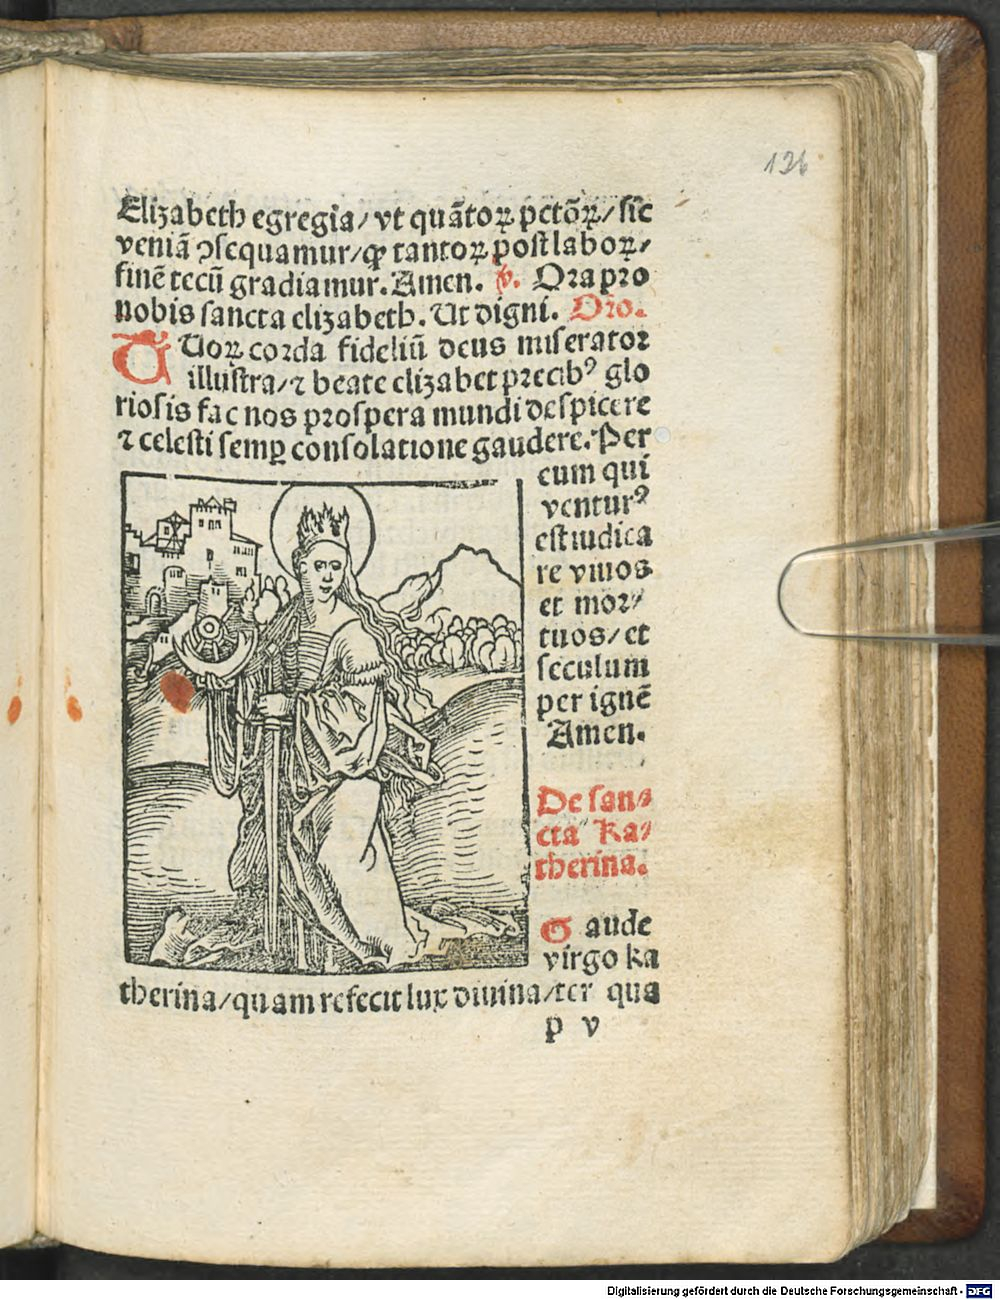 126
Elizabeth egregia/ vt quātoꝝ pctōꝝ/ sic
veniā ꝯsequamur/ ꝙ tantoꝝ post laboꝝ/
finē tecū gradiamur. Amen. ꝟ. Ora pro
nobis sancta elizabeth. Ut digni. Oro.
TUoꝝ corda fideliū deus miserator
illustra/ ⁊ beate elizabet precibꝰ glo
riosis fac nos prospera mundi despicere
⁊ celesti semꝑ consolatione gaudere. Per
eum qui
venturꝰ
est iudica
re viuos
et mor/
tuos/ et
seculum
per ignē
Amen.
De san/
cta Ka/
therina.
Gaude
virgo ka
therina/ quam refecit lux diuina/ ter qua
p v
Digitalisierung gefördert durch die Deutsche Forschungsgemeinschaft - DFG